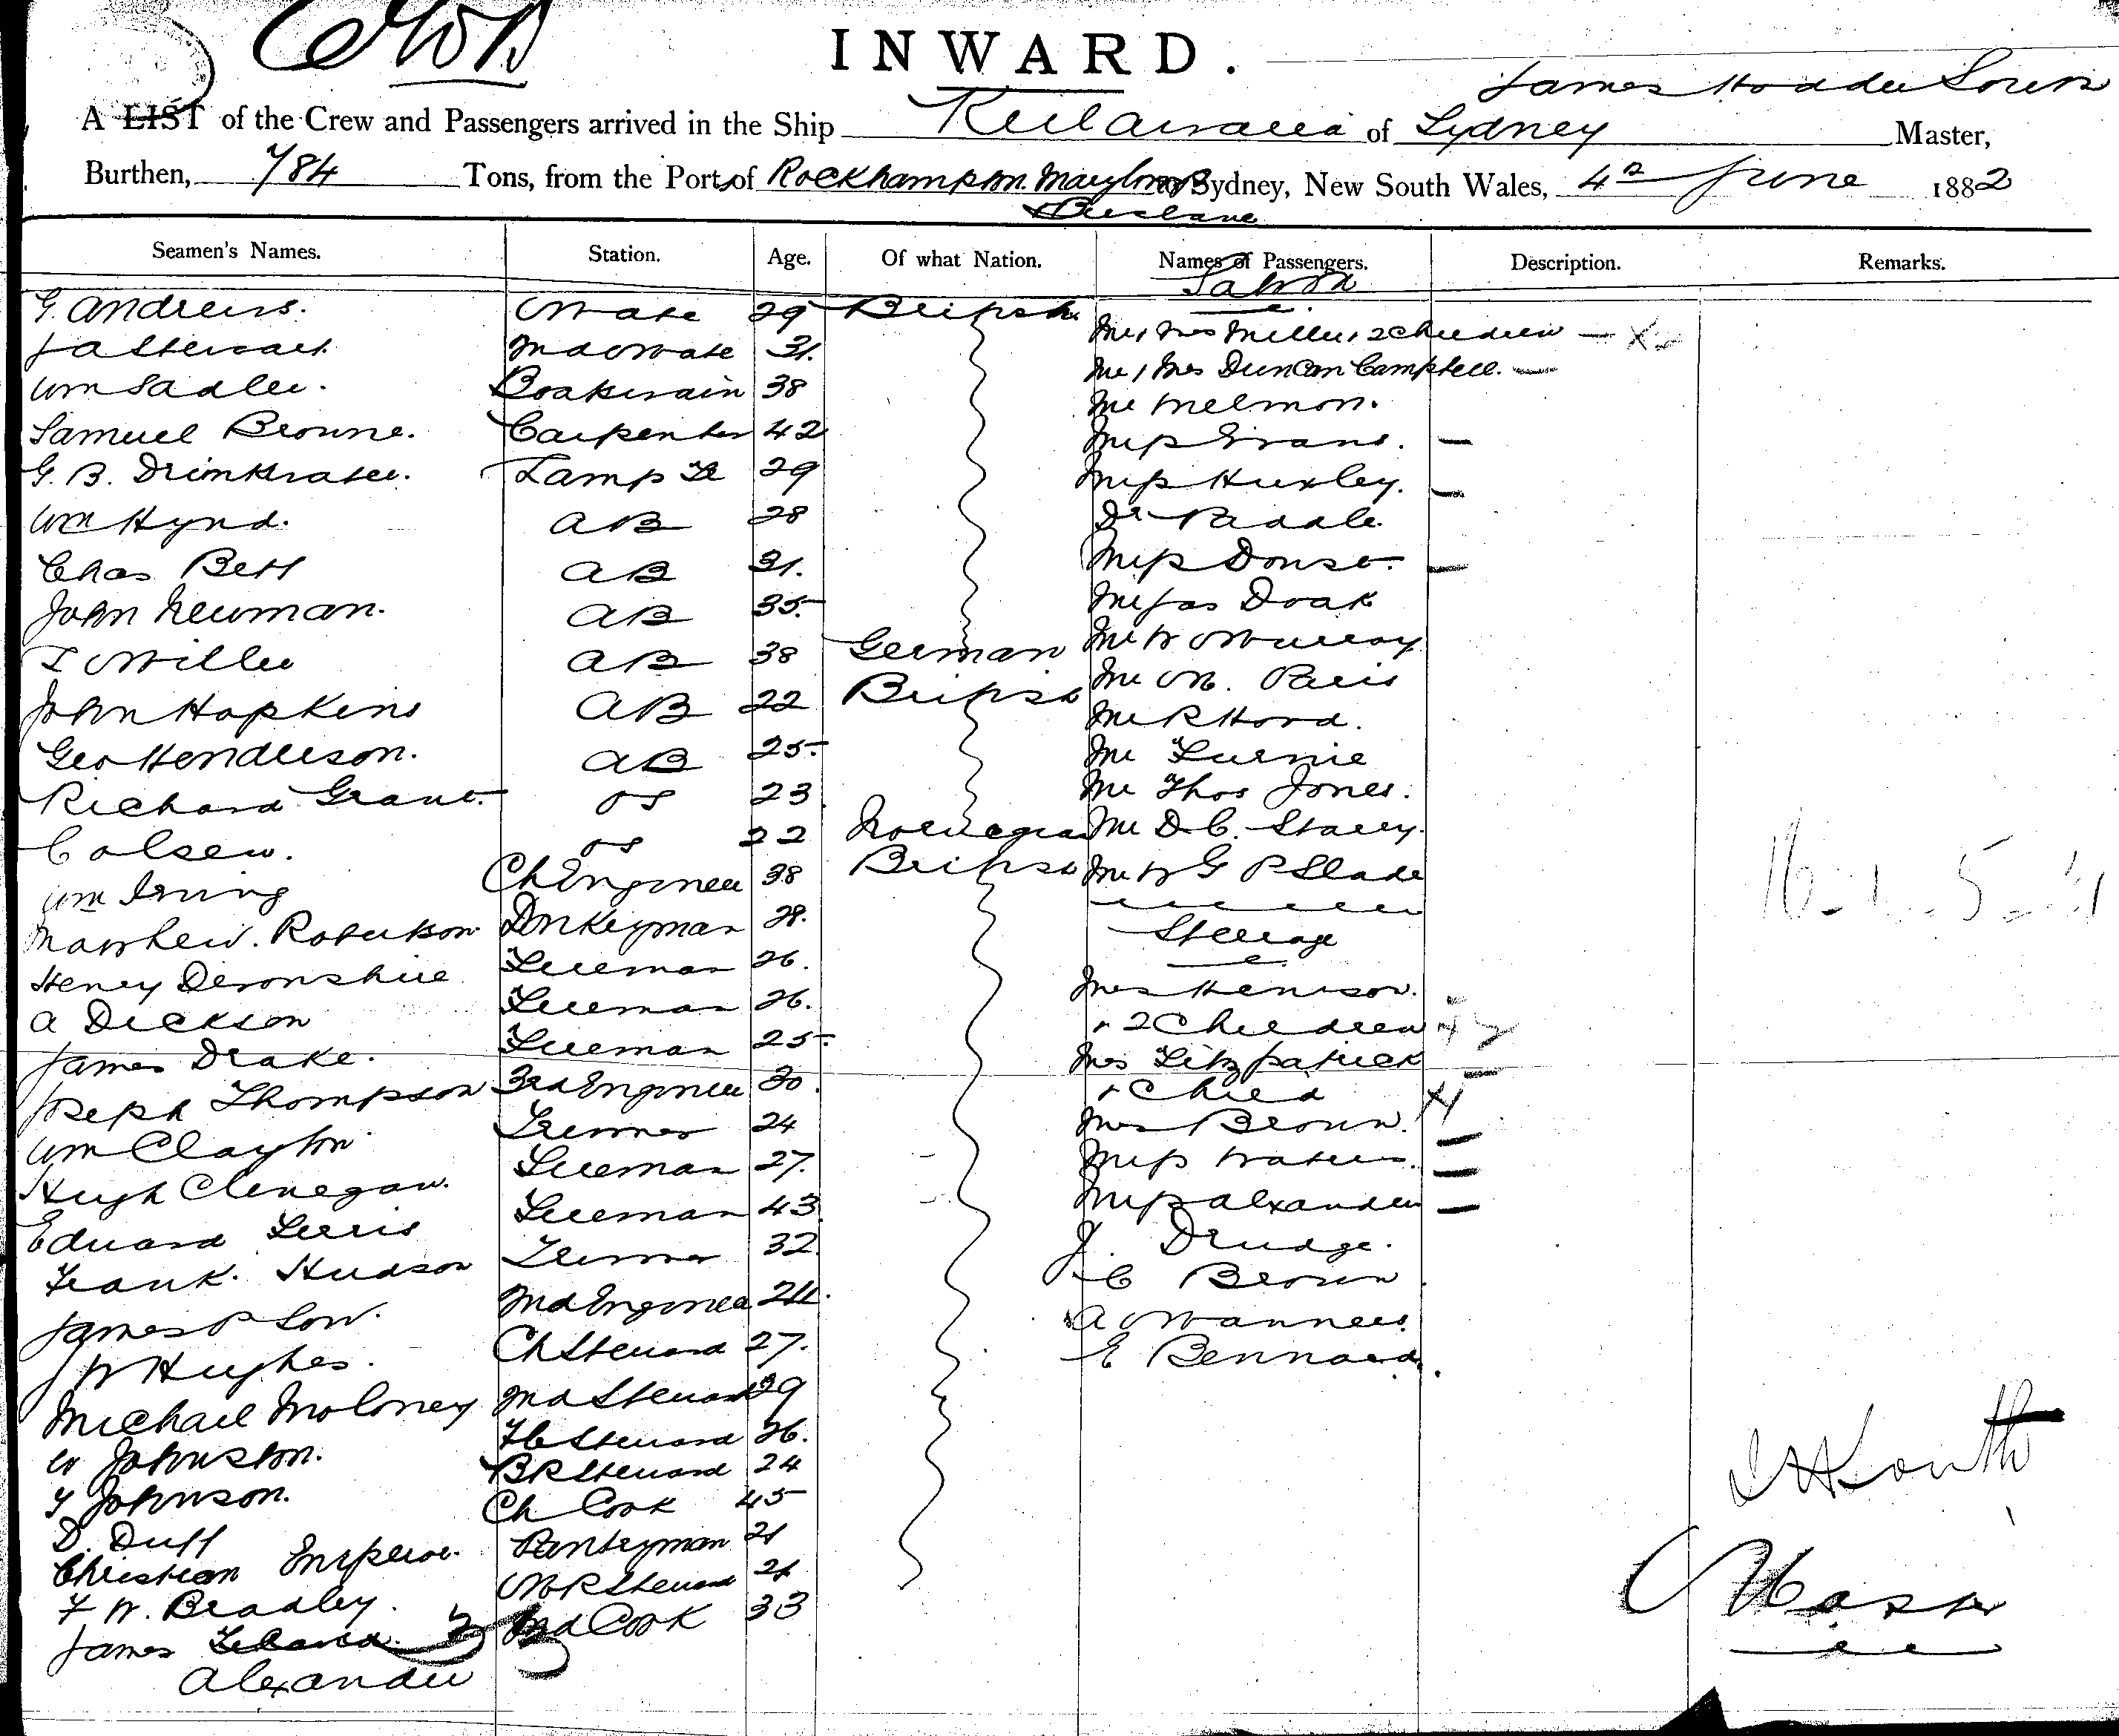 INWARD.
James Hodder South
A LIST of the Crew and Passengers arrived in the Ship Keilawarra of Sydney Master,
Burthen, 784 Tons, from the Ports of Rockhampton Marybro to Sydney, New South Wales, 4th June 1882
& Brisbane
Seamen's Names. Station. Age. Of what Nation. Names of Passengers. Description. Remarks.
Saloon
G. Andrews. Mate 29 British Mr & Mrs Miller & 2 Children
J A Stewart. 2nd Mate 31. Mr & Mrs Duncan Campbell.
Wm Sadler. Boatswain 38 Mr
Samuel Browne. Carpenter 42 Miss Evans.
G. B. Drinkwater. Lamp Tr 29 Miss Huxley.
Wm Hynd. AB 28 Dr
Chas Bell AB 31. Miss
John Newman. AB 35. Mr Jas Doak
T Miller AB 38 German Mr W Murray
John Hopkins AB 22 British Mr M. Paris
Geo Henderson. AB 25. Mr R Hood.
Richard Grant. OS 23 Mr
C Olsen. OS 22 Norwegian Mr Thos Jones.
Wm Irving Ch Engineer 38 British Mr D. C. Stacey.
Mr W G P Slade
Mathew. Robertson Donkeyman 28. Steerage
Henry Devonshire Fireman 26. Mrs Henison.
A Dickson Fireman 26. & 2 Children
James Drake. Fireman 25. Mrs Fitzpatrick
Joseph Thompson 3rd Engineer 30. & Child
Wm Clayton Trimmer 24 Mrs Brown.
Hugh Clenegan. Fireman 27. Miss Waters.
Edward Ferris Fireman 43. Miss Alexander
Frank. Hudson Trimmer 32. J. Drudge.
James P Low. 2nd Engineer 24. C Brown
J W Hughes. Ch Steward 27. A Manners.
Michael Moloney 2nd Steward 29 E Bennard.
W Johnston. FC Steward 26.
T Johnson. BR Steward 24
D. Duff Ch Cook 45
Christian Pantryman 21
F W. Bradley. MR Steward 21
James 2nd Cook 33
Alexander
J H South
Master